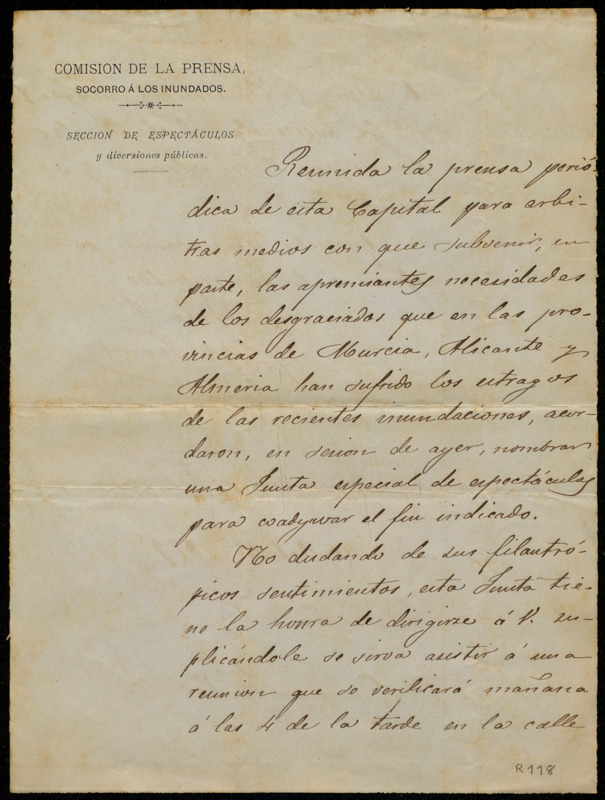 COMISION DE LA PRENSA,
SOCORRO Á LOS INUNDADOS.
SECCION DE ESPECTÁCULOS
y diversiones públicas.
Reunida la prensa perió-
dica de esta Capital para arbi-
tras medios con que subvenir, en
parte, las apremiantes necesidades
de los desgraciados que en las pro-
vincias de Murcia, Alicante y
Almeria han sufrido los estragos
de las recientes inundaciones, acor-
daron, en sesion de ayer, nombrar
una Junta especial de espectáculos
para coadyuvar el fin indicado.
No dudando de sus filantró-
picos sentimientos, esta Junta tie-
ne la honra de dirigirse á V. su-
plicándole se sirva asistir á una
reunion que se verificará mañana
á las 4 de la tarde en la calle
R118